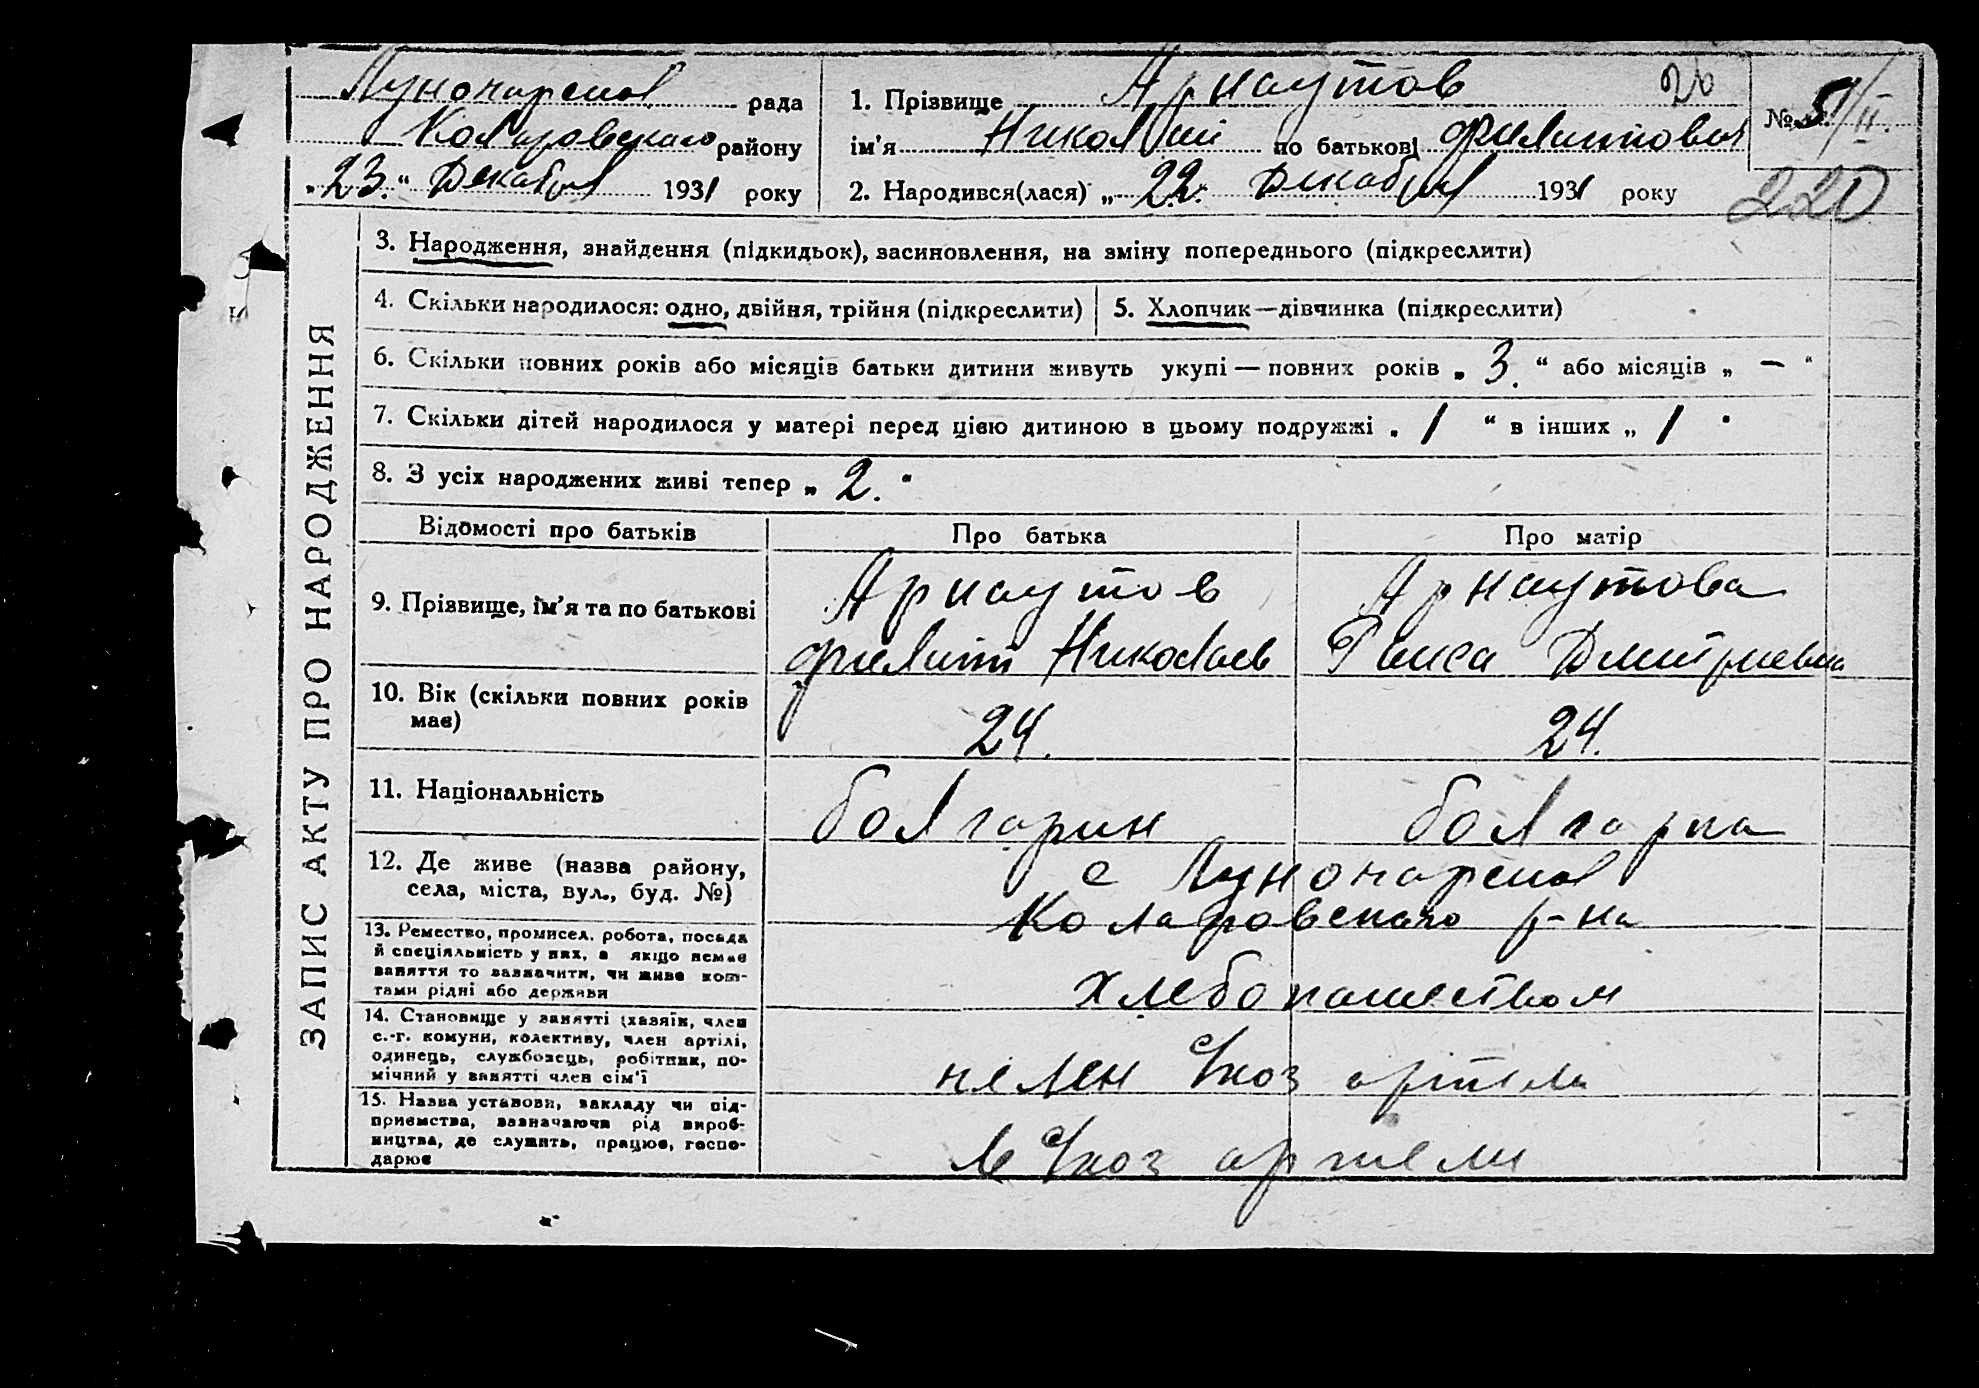 Луночарской рада
Коларовского району
„23.“ Декабря 1931 року
1. Прізвище Арнаутов
ім'я Николай по батькові Филиппович
2. Народився(лася) „22. Декабря 1931 року
26
№ 51/II.
220
ЗАПИС АКТУ ПРО НАРОДЖЕННЯ
3. Народження, знайдення (підкидьок), засиновлення, на зміну попереднього (підкреслити)
4. Скільки народилося: одно, двійня, трійня (підкреслити)
5. Хлопчик—дівчинка (підкреслити)
6. Скільки повних років або місяців батьки дитини живуть укупі — повних років „ 3. “ або місяців „ — “
7. Скільки дітей народилося у матері перед цією дитиною в цьому подружжі „ 1 “ в інших „ 1 “
8. З усіх народжених живі тепер „ 2. “
Відомості про батьків
Про батька
Про матір
9. Прізвище, ім'я та по батькові
Арнаутов
Филипп Николаев
Арнаутова
Раиса Дмитриевна
10. Вік (скільки повних років
має)
24.
24.
11. Національність
болгарин
болгарка
12. Де живе (назва району,
села, міста, вул., буд. №)
с Луночарской
Коларовского р-на
13. Ремество, промисел, робота, посада
й спеціяльність у них, а якщо немає
заняття то зазначити, чи живе кош-
тами рідні або держави
хлебопашеством
14. Становище у занятті (хазяїн, член
с.-г. комуни, колективу, член артілі,
одинець, службовець, робітник, по-
мічний у занятті член сім'ї
член с/хоз артели
15. Назва установи, закладу чи під-
приємства, зазначаючи рід вироб-
ництва, де служить, працює, госпо-
дарює
в с/хоз артели